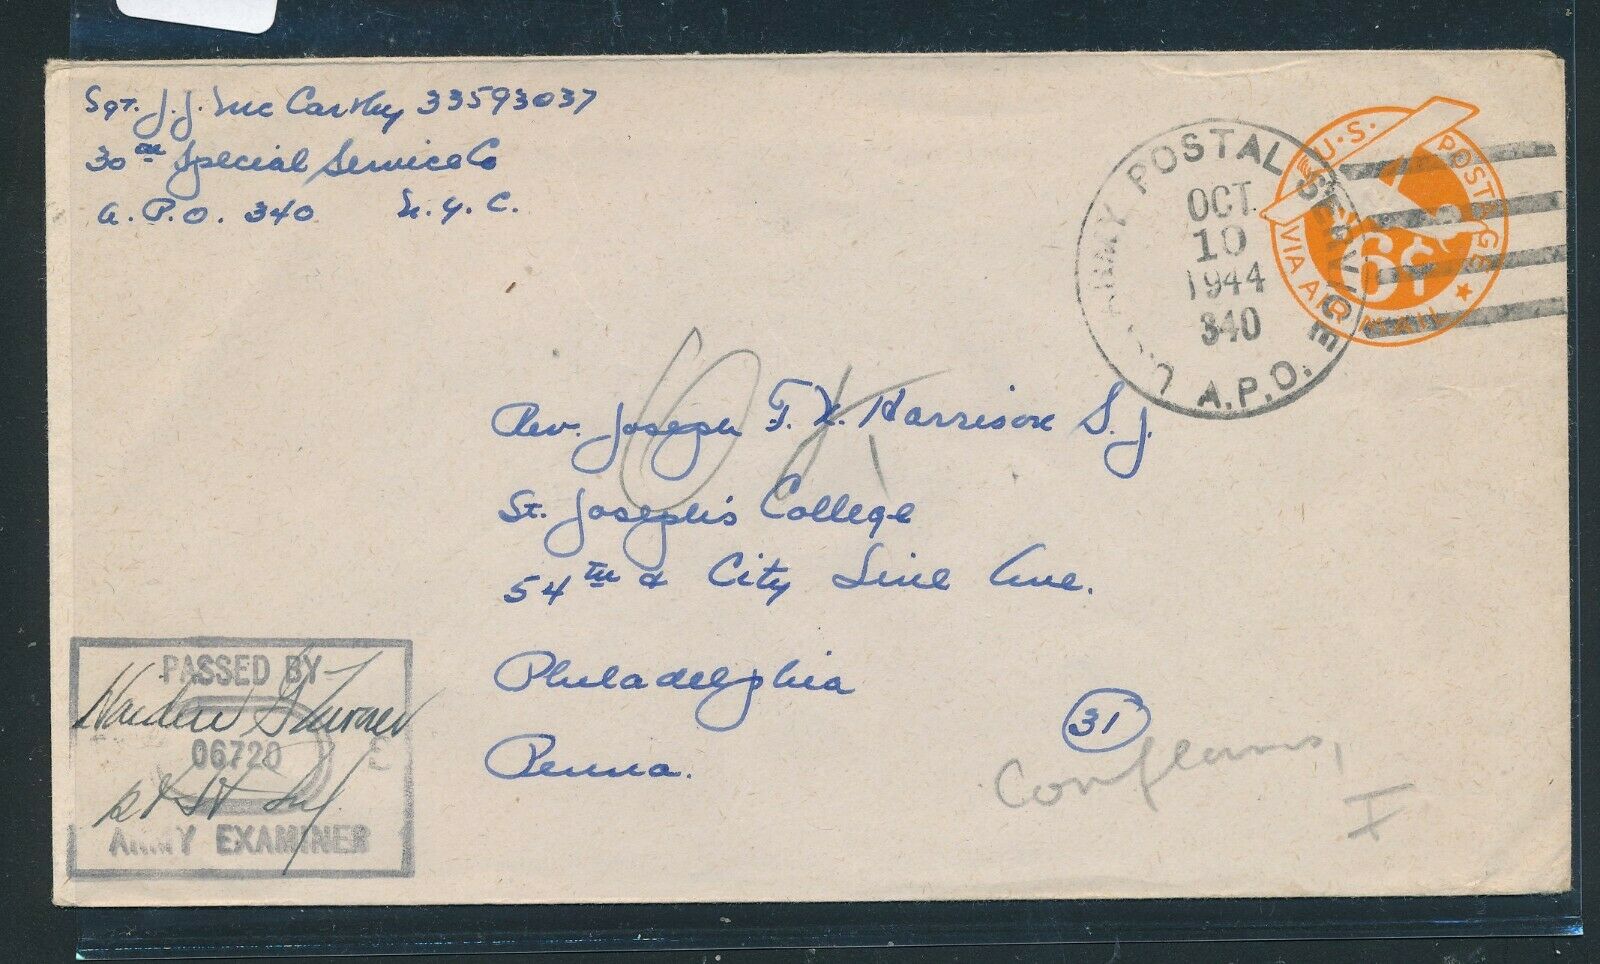 Sgt. J. J. McCarthy 33593037
30th Special Service Co
A. P. O. 340 N. Y. C.
U.S. ARMY POSTAL SERVICE
OCT
10
1944
340
A.P.O.
U.S. POSTAGE
6¢
VIA AIR MAIL
Rev. Joseph F. X. Harrison S. J.
St. Joseph's College
54TH & City Line Ave.
Philadelphia 31
Penna.
PASSED BY
06720
1st Lt Inf.
ARMY EXAMINER
Conflans,
F